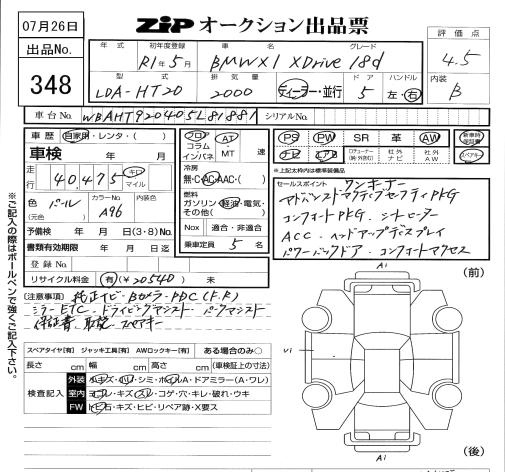 07月26日
ZIP オークション出品票
出品No.
348
年式 初年度登録 車名 グレード
R1年5月 BMW X1 XDrive 18d
型式 排気量 ドア ハンドル
LDA-HT20 2000 ディーラー・並行 5 左・右
評価点
4.5
内装
B
車台No. WBAHT920405L81881 シリアルNo.
車歴 自家用・レンタ・( )
車検 年 月
走行 40,475 キロ マイル
色 パール (元色) カラーNo. A96 内装色
予備検 年 月 日(3・8)Mo.
書類有効期限 年 月 日迄
登録No.
リサイクル料金 有(¥20540) 未
フロア コラム インパネ AT・MT 速
冷房
無・C・AC・AAC・( )
燃料
ガソリン・軽油・電気・その他( )
Nox 適合・非適合
乗車定員 5 名
PS PW SR 革 AW 新車時保証書
ナビ エアB 社外ナビ 社外AW スペアキー
※上記太枠内は標準装備品
セールスポイント ワンオーナー
アドバンストアクティブセーフティPKG
コンフォートPKG. シートヒーター
ACC. ヘッドアップディスプレイ
パワーバックドア. コンフォートアクセス
(注意事項) 純正ナビ・Bカメラ・PDC(F.R)
ミラーETC. ドライビングアシスト. パークアシスト
保証書. 取説. スペアキー
スペアタイヤ[有] ジャッキ工具[有] AWロックキー[有] ある場合のみ○
長さ cm 幅 cm 高さ cm (車検証上の寸法)
検査記入
外装 小キズ・凹・シミ・ホイルA・ドアミラー(A・ワレ)
室内 ヨゴレ・キズ・スレ・コゲ・穴・キレ・破れ・ウキ
FW トビ石・キズ・ヒビ・リペア跡・X要ス
※ご記入の際はボールペンで強くご記入下さい。
(前)
A1
U1
A1
(後)